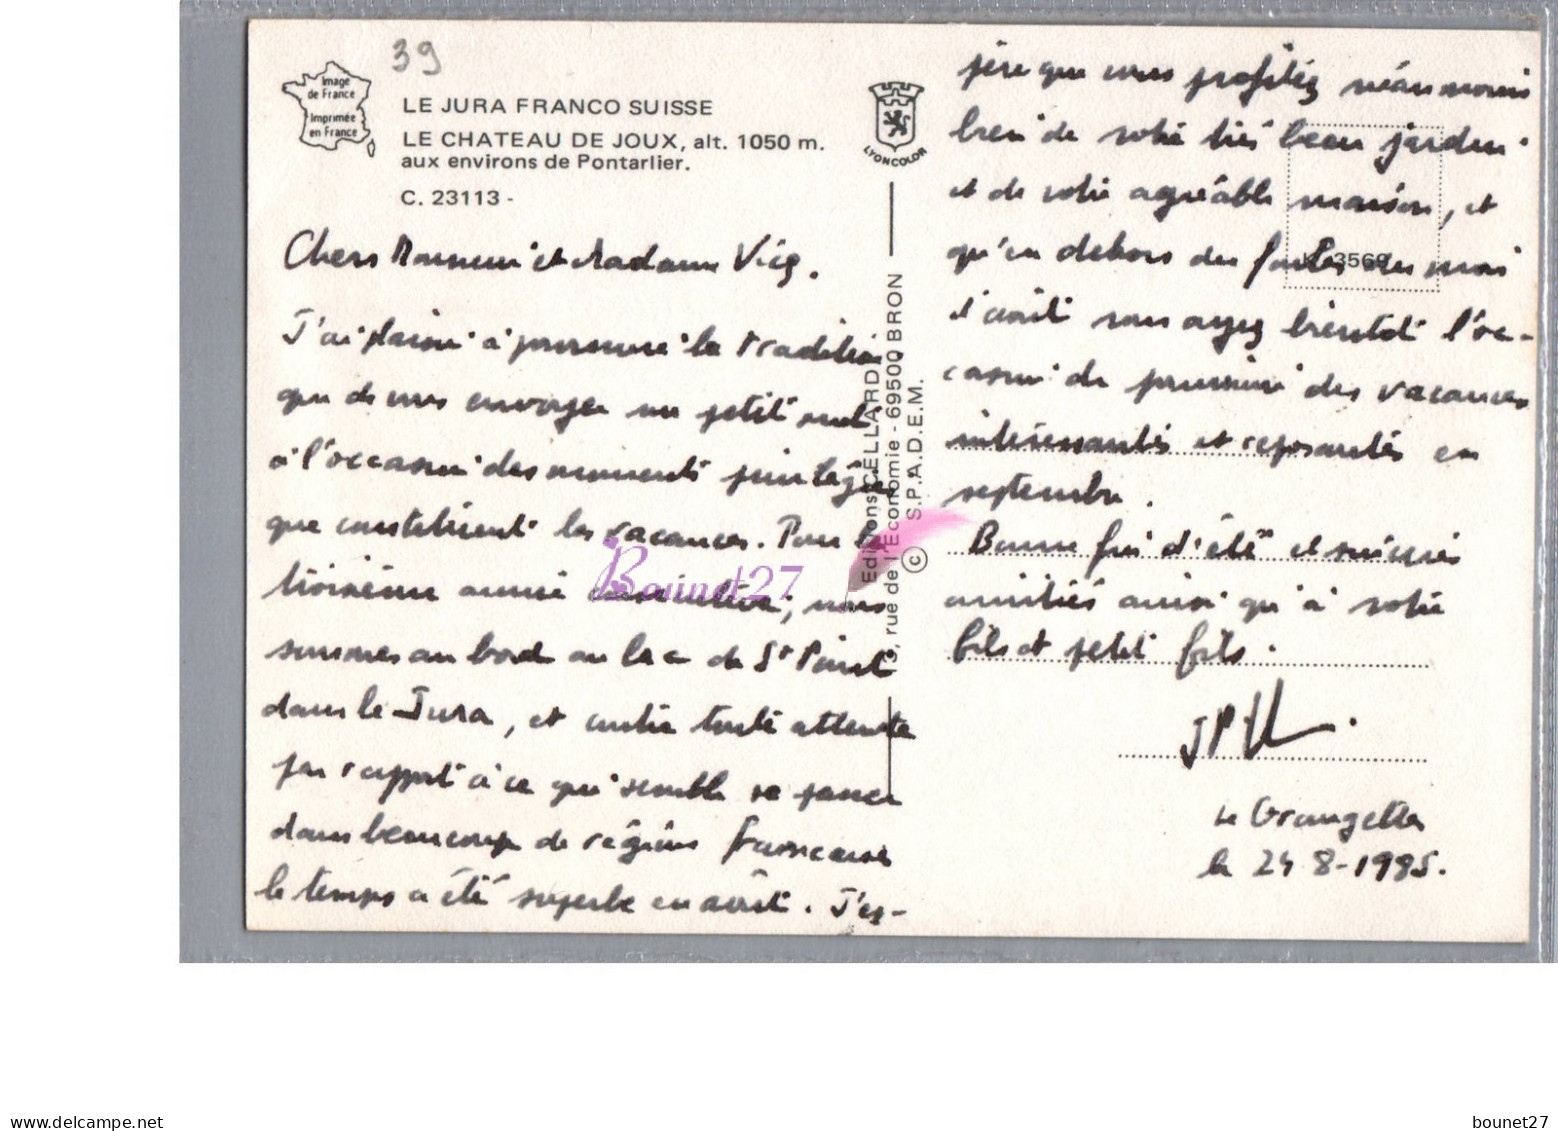 39
Image
de France
Imprimée
en France
LE JURA FRANCO SUISSE
LE CHATEAU DE JOUX, alt. 1050 m.
aux environs de Pontarlier.
C. 23113 -
Chers Monsieur et Madame
J'ai plaisir à poursuivre la tradition
que de vous envoyer un petit mot
à l'occasion des moments privilégiés
que constituent les vacances. Pour la
troisième année consécutive, nous
sommes au bord au lac de St Point
dans le Jura, et contre toute attente
par rapport à ce qui semble se passer
dans beaucoup de régions françaises
le temps a été superbe en août. J'es-
LYONCOLOR
Editions CELLARD
, rue de l'Economie - 69500 BRON
© S.P.A.D.E.M.
père que vous profitez néanmoins
bien de votre très beau jardin
et de votre agréable maison, et
qu'en dehors des
3569
mois
d'août vous ayez bientôt l'oc-
casion de poursuivre des vacances
intéressantes et reposantes en
septembre.
Bonne fin d'été et sincères
amitiés ainsi qu'à votre
fils et petit fils.
JP
Le Grangettes
le 24 8-1985.
Bounet27
delcampe.net
bounet27